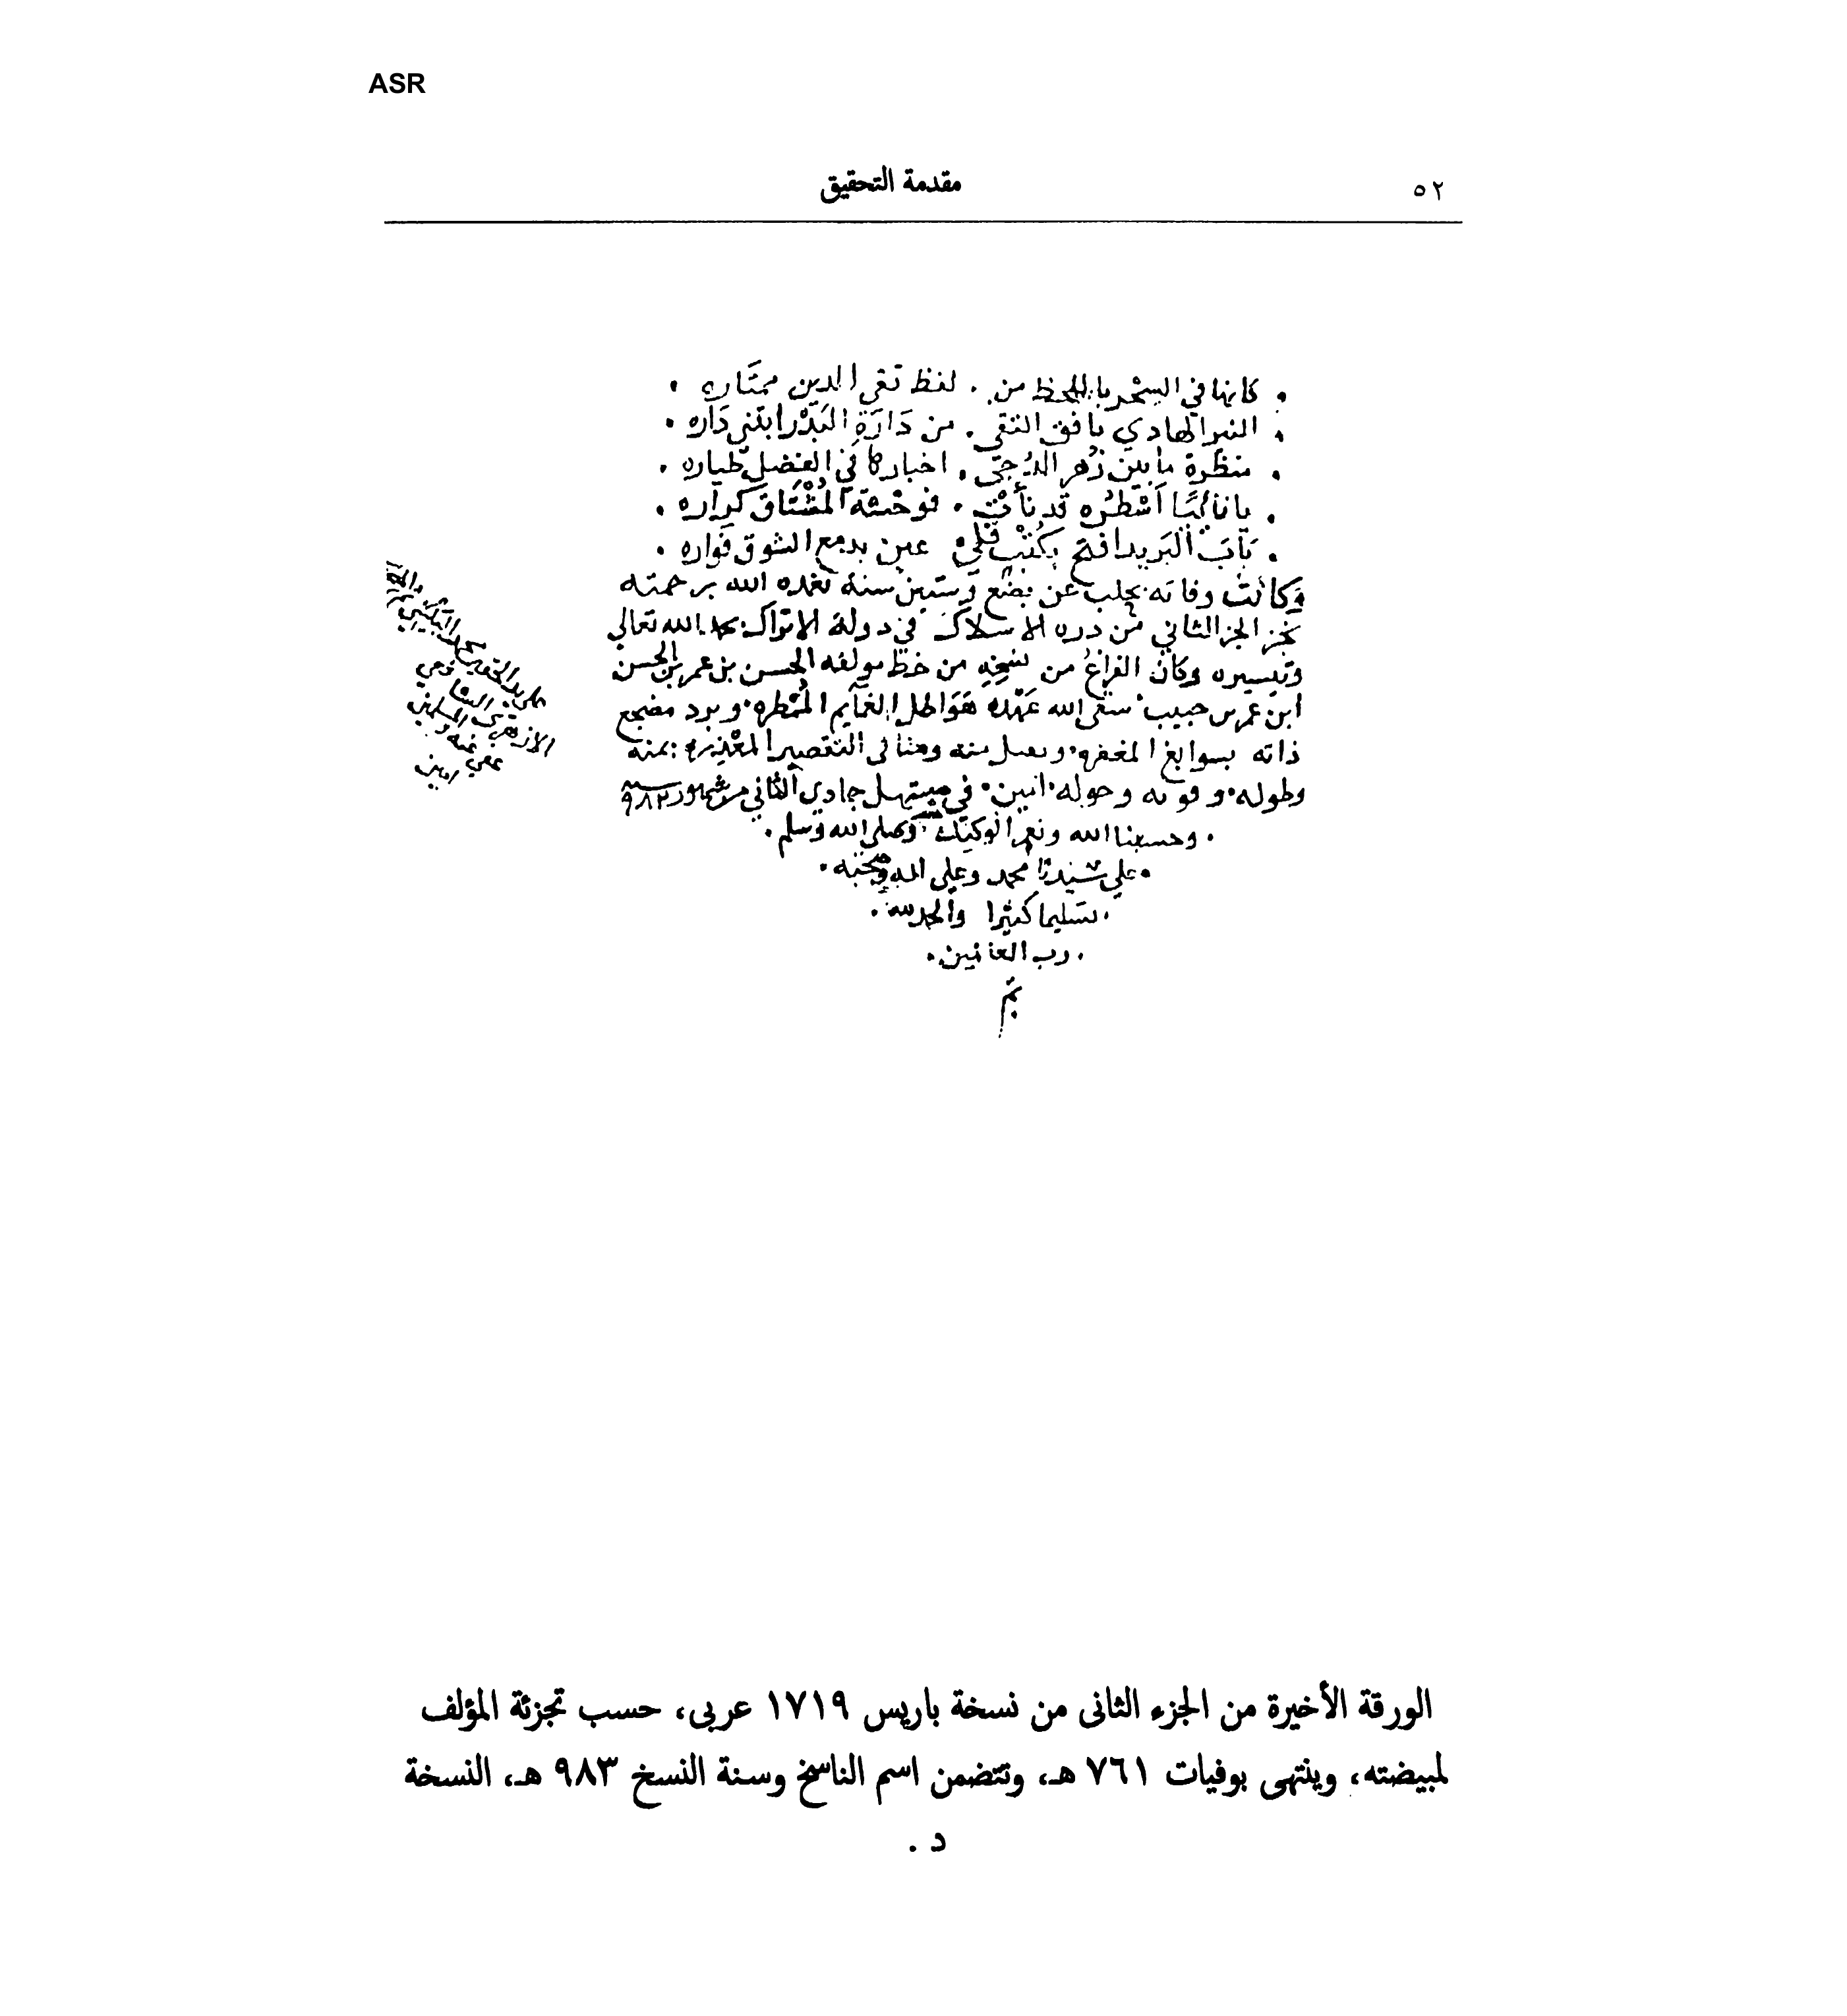 ASR
٥٢
مقدمة التحقيق
كانها في السحر باللحظ من . لفظ تقي الدين ممتاره
النير الهادي بافق التقى . من دَارَةِ البَدْر ابتنى دَاره
منظرة ما بين زهر الدُجى . اخباره في الفضل طياره
يا نائيًا اسطره قد نأت . فوحشة المشتاق كراره
بَابَ البَريد افتح بكتب فلي عين بدمع الشوق فواره
وكانت وفاته بحلب عن بضع وستين سنة تغمده الله برحمته
نجز الجز الثاني من دره الاسلاك في دولة الاتراك الله تعالى
وتيسيره وكان الفراغ من نسخه من خط مولفه الحسن بن عمر بن الحسن
ابن عمر بن حبيب سقى الله عَهْده هَوَاطل الغمايم الممطره . وبرد مضجع
ذاته بسوابغ المغفره . التقصير المعذره . بمنه
وطوله . وقوته وحوله . امين . في مستهل جمادى الثاني من شهور سنة ٩٨٣
. وحسبنا الله ونعم الوكيل وصلى الله وسلم .
. على سيدنا محمد وعلى اله وصحبه .
. تسليما كثيرا والحمد لله .
. رب العالمين .
تم
الشافعي
الازهري
المسلمين
امين
الورقة الأخيرة من الجزء الثانى من نسخة باريس ١٧١٩ عربى، حسب تجزئة المؤلف
لمبيضته، وينتهى بوفيات ٧٦١ هـ، وتتضمن اسم الناسخ وسنة النسخ ٩٨٣ هـ، النسخة
د .